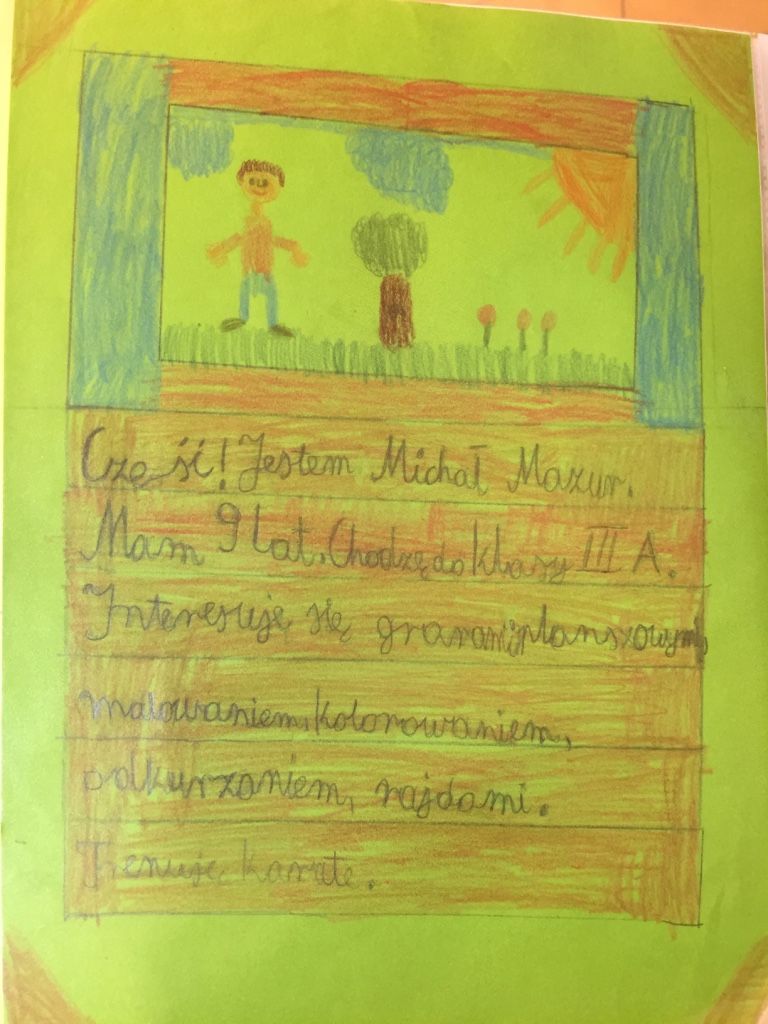 Cześć! Jestem Michał Mazur.
Mam 9 lat. Chodzę do klasy III A.
Interesuję się grarami planszowymi,
malowaniem, kolorowaniem,
odkurzaniem, rajdami.
Trenuję karate.